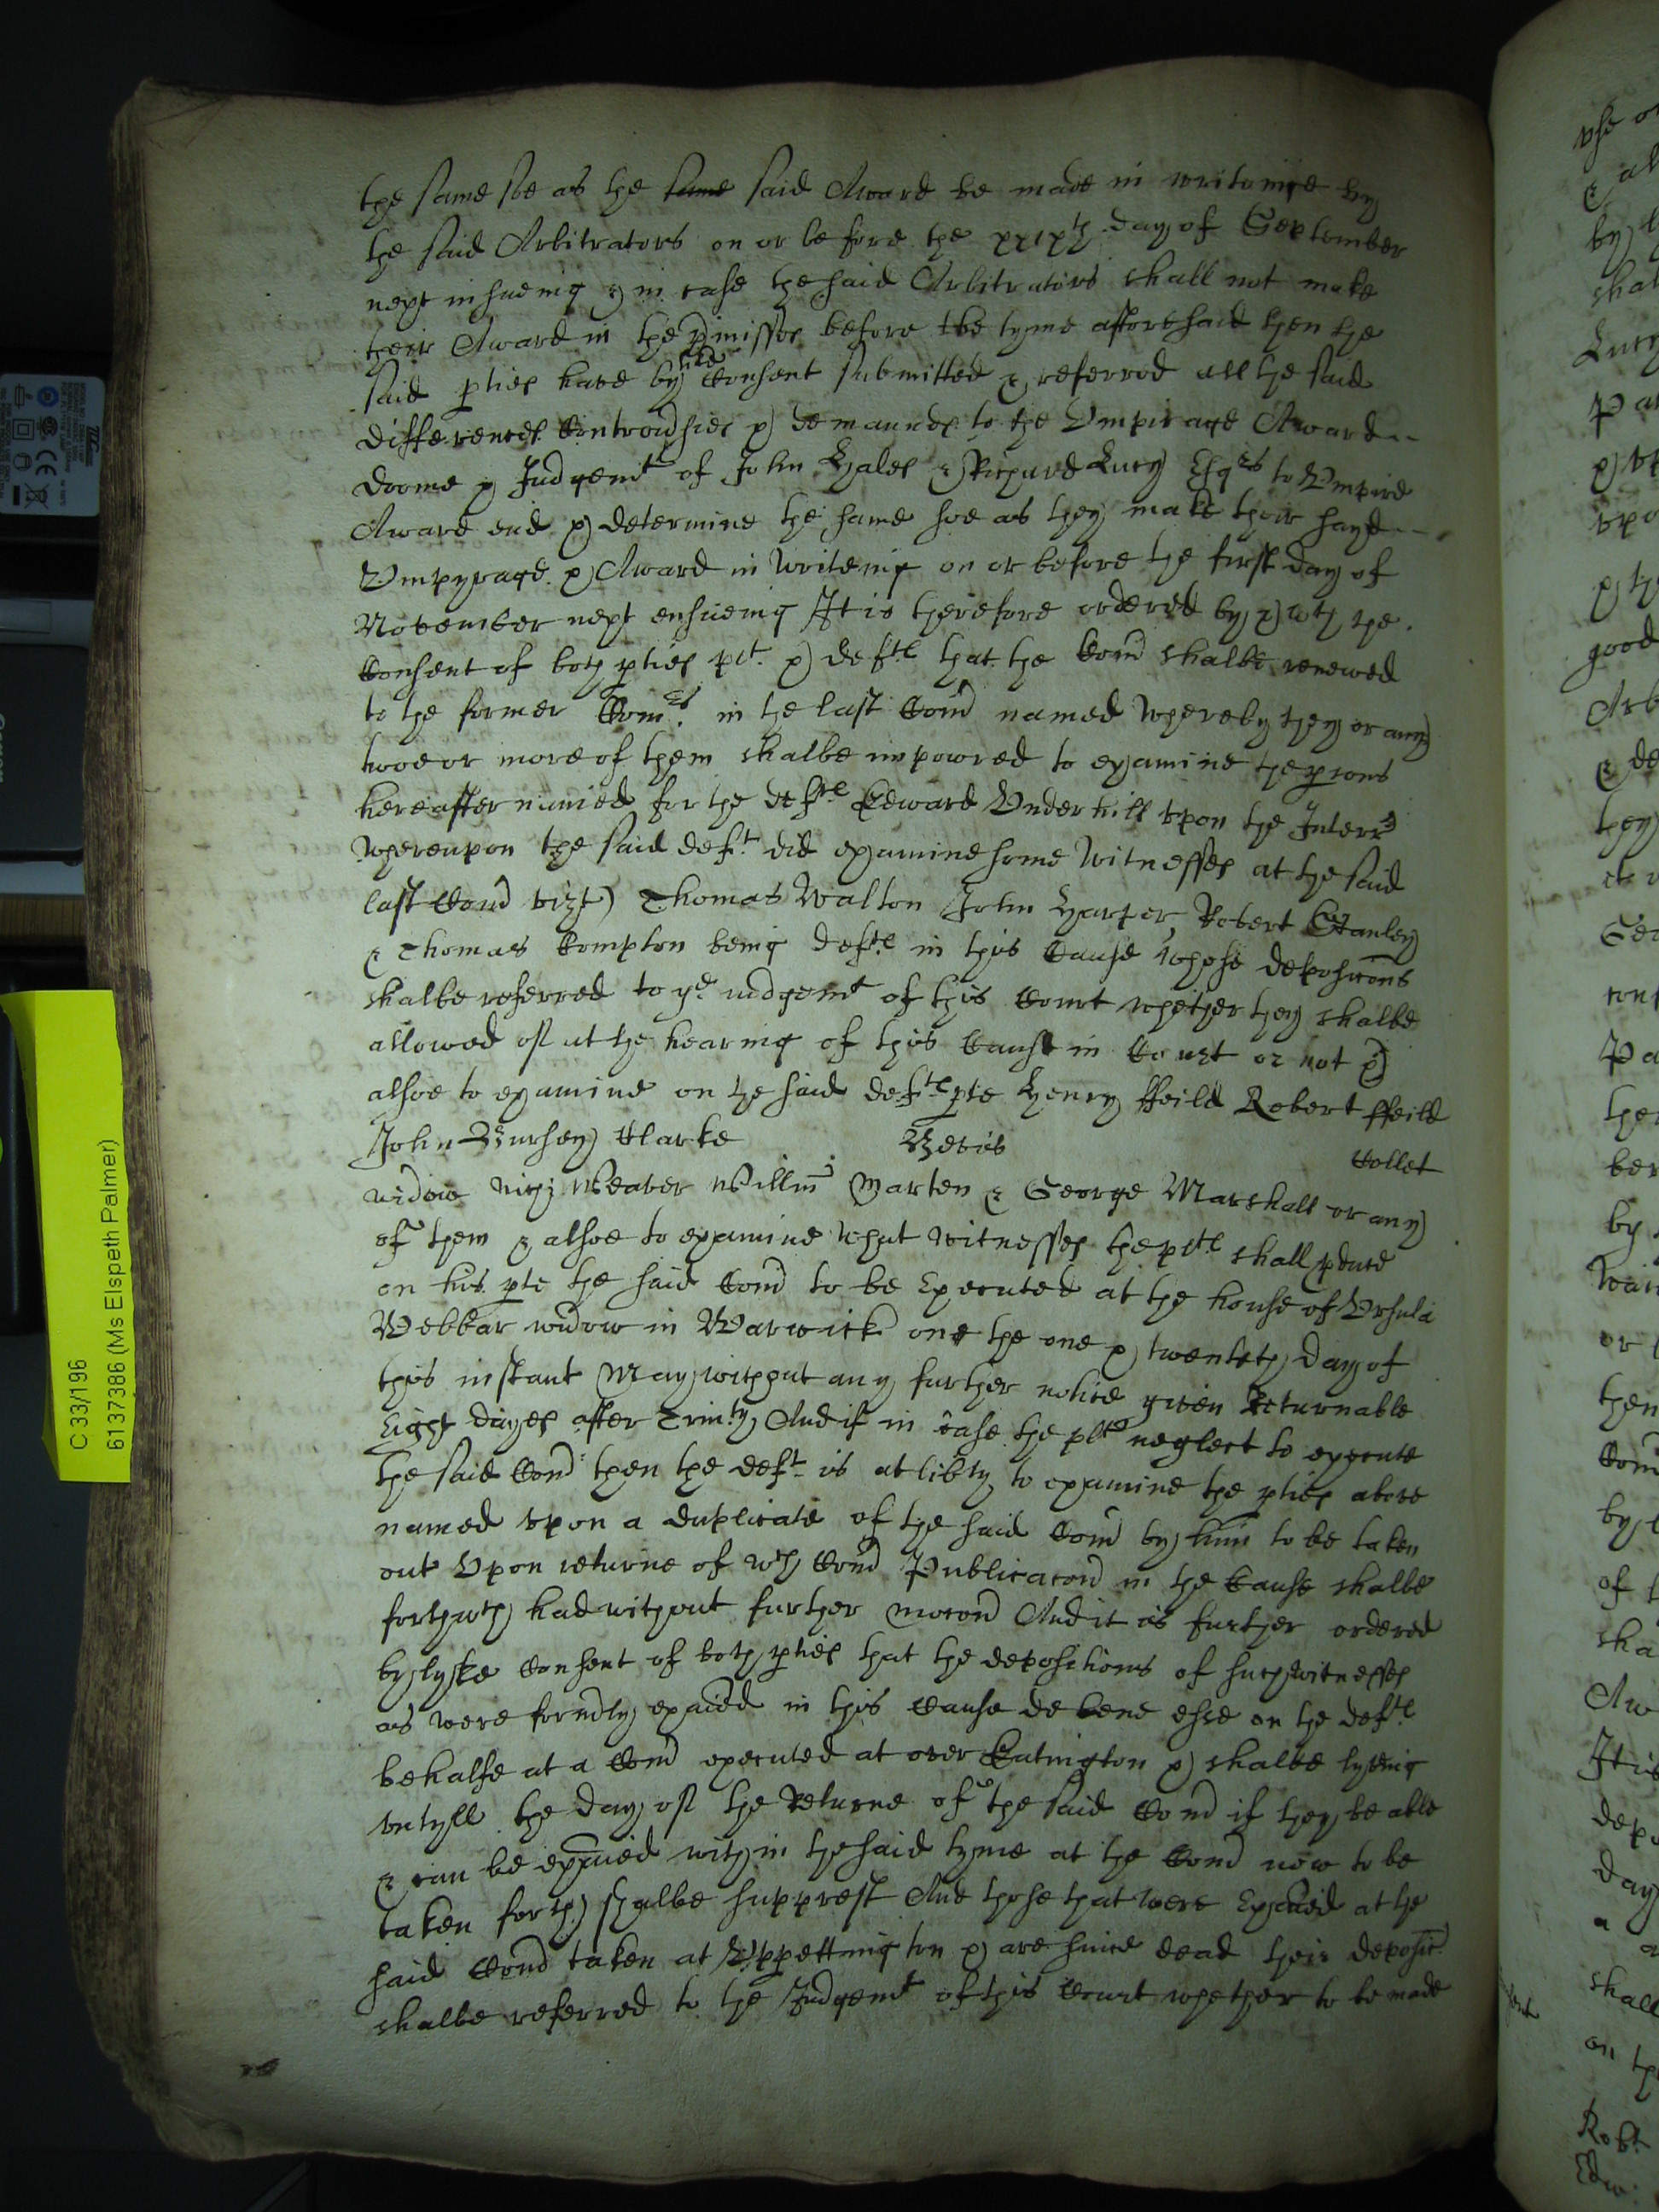 the same soe as the same said Award be made in writeinge by
the said Arbitrators on or before the xxixth day of September
next insueing & in case the said Arbitrators shall not make
their Award in the pmisses before the tyme afforesaid then the
said pties have by like Consent submitted & referred all the said
differences Controvsies & demaundes to the Vmpirage Award
doome & Judgemt of John Hales & Richard Lucy Esqrs to Vmpire
Award end & determine the same soe as they make their sayd
Vmpyrage & Award in Writeing on or before the first day of
November next ensueing It is therefore ordered by & wth the
Consent of both pties plt & defts that the Comd shalbe renewed
to the former Comrs in the last Comd named whereby they or any
twoe or more of them shalbe impowred to examine the psons
hereafter named for the defte Edward Vnderhill vpon the Interrs
whereupon the said deft did examine some Witnesses at the said
last Comd vizt) Thomas Walton John Harper Robert Stanley
& Thomas Compton being defts in this Cause whose deposicons
shalbe referred to ye iudgemt of this Court whether they shalbe
allowed of at the hearing of this Cause in Court or not &
alsoe to examine on the said defts pte Henry ffeild Robert ffeild
John Bursey Clarke Bevis Collet
widow Nich: Weaver Willm Marten & George Marshall or any
of them & alsoe to examine what witnesses the plts shall pduce
on his pte the said Comd to be Executed at the house of Vrsula
Webbar widow in Warwick one the one & twenteth day of
this instant May without any further notice given Returnable
Eight dayes after Trinty And if in case the plte neglect to execute
the said Comd then the deft is at libty to examine the pties above
named vpon a duplicate of the said Comd by him to be taken
out Vpon returne of wch Comd Publicacond in the Cause shalbe
forthwth had without further mocond And it is further ordered
by lyke Consent of both pties that the depositions of such witnesses
as were formdly exaied in this Cause de bene esse on the defts
behalfe at a Comd executed at over Eatington & shalbe lyveing
vntyll the day of the Returne of the said Comd if they be able
& can be exaied within the said tyme at the Comd now to be
taken forth) shalbe supprest And those that were Exaied at the
said Comd taken at Vppettington & are since dead their deposic
shalbe referred to the Judgemt of this Court whether to be made
C 33/196
61373786 (Ms Elspeth Palmer)